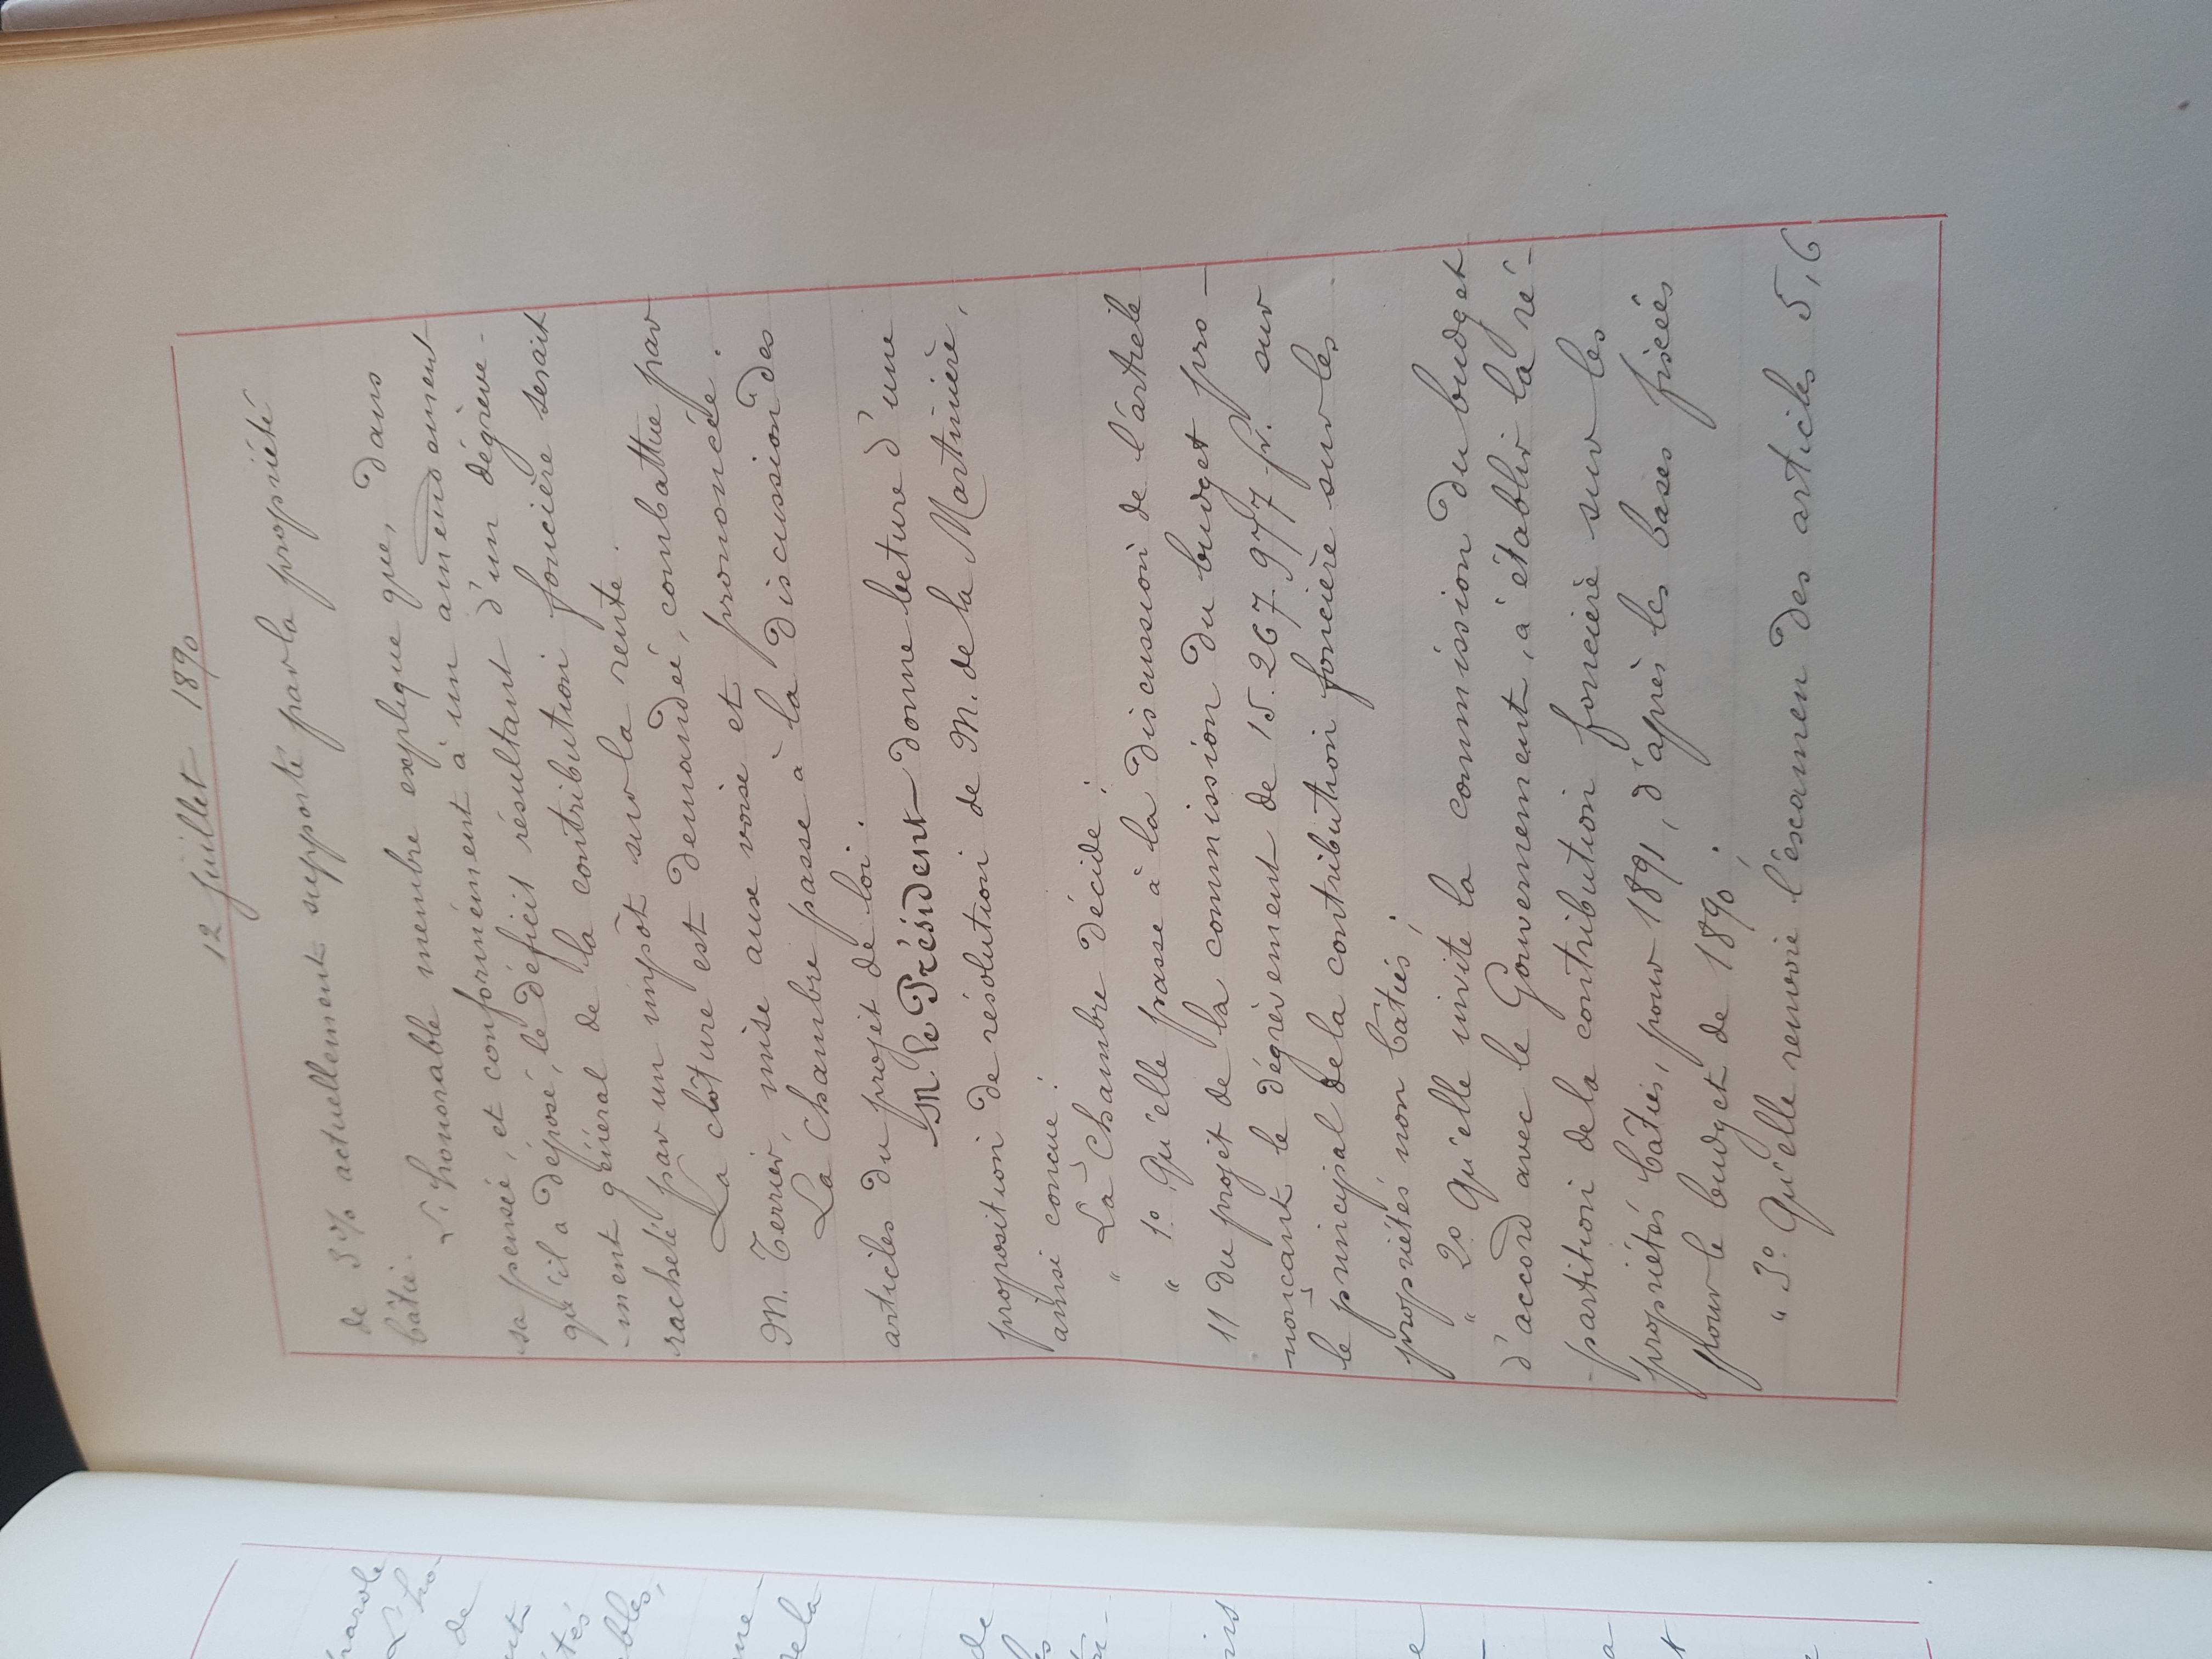 12 juillet 1890
de 3% actuellement supporté par la propriété
bâtie.
L'honorable membre explique que, dans
sa pensée, et conformément à un amendement
qu'il a déposé, le déficit résultant d'un dégrève-
-ment général de la contribution foncière serait
racheté par un impôt sur la rente.
La clôture est demandée, combattue par
M. Terrier, mise aux voix et prononcée.
La Chambre passe à la discussion des
articles du projet de loi.
M. le Président donne lecture d'une
proposition de résolution de M. de la Martinière,
ainsi conçue :
" La Chambre décide :
" 1º Qu'elle passe à la discussion de l'article
11 du projet de la commission du budget pro-
nonçant le dégrèvement de 15.267.977 fr. sur
le principal de la contribution foncière sur les
propriétés non bâties ;
" 2º Qu'elle invite la commission du budget
d'accord avec le Gouvernement, à établir la ré-
-partition de la contribution foncière sur les
propriétés bâties, pour 1891, d'après les bases fixées
pour le budget de 1890 ;
" 3º Qu'elle renvoie l'examen des articles 5, 6
parole
L'ho-
de
tés
bles,
de